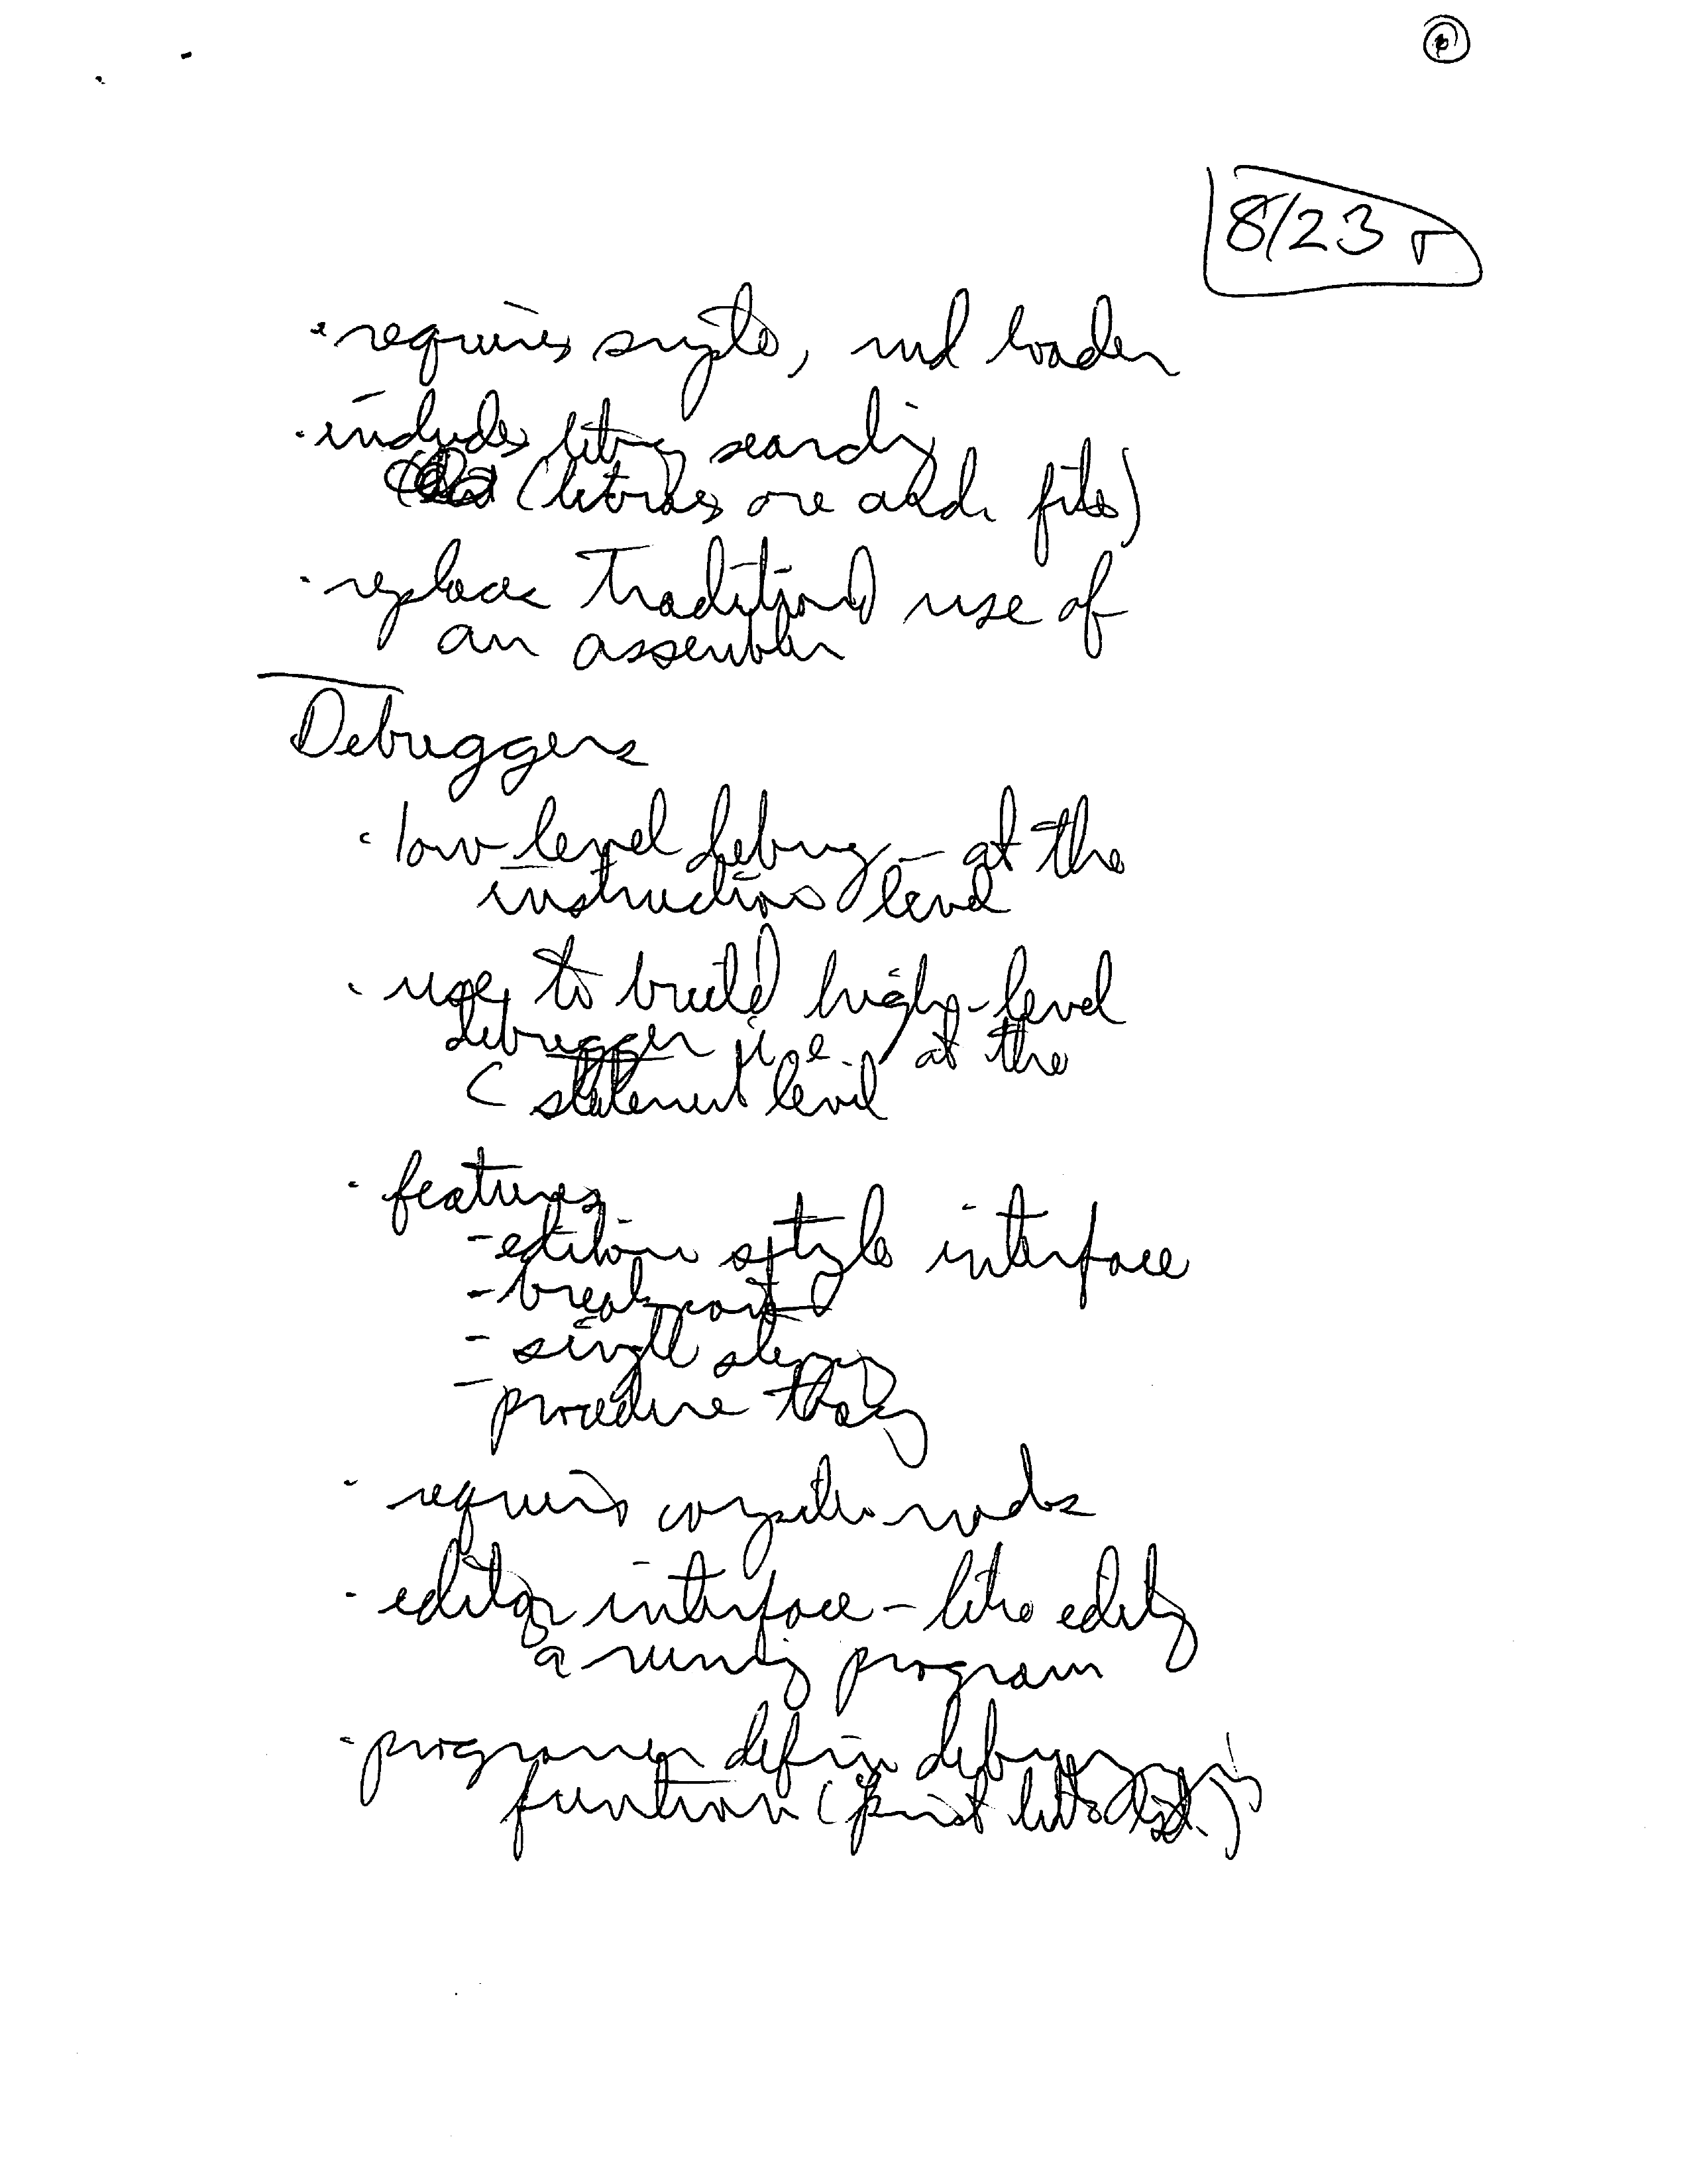 8/23
· requires scripts, and loader
· includes library searching
(libraries are arch. files)
· replaces traditional use of
an assembler
Debuggers
· low-level debug – at the
instruction level
· use to build high-level
debugger i.e. at the
C statement level
· features
- editor style interface
- break point
- single stepping
- procedure
· requires nodes
· editor interface – like editing
a running program
· programmer define debugging
function (print